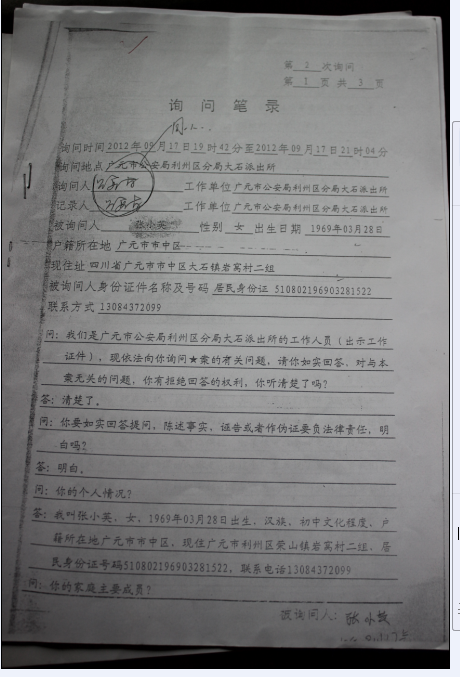 第 2 次询问
第 1 页 共 3 页
询 问 笔 录
询问时间 2012年09月17日19时42分至2012年09月17日21时04分
询问地点 广元市公安局利州区分局大石派出所
询问人 工作单位 广元市公安局利州区分局大石派出所
记录人 工作单位 广元市公安局利州区分局大石派出所
被询问人 张小英 性别 女 出生日期 1969年03月28日
户籍所在地 广元市市中区
现住址 四川省广元市市中区大石镇岩窝村二组
被询问人身份证件名称及号码 居民身份证 510802196903281522
联系方式 13084372099
问：我们是广元市公安局利州区分局大石派出所的工作人员（出示工作
证件），现依法向你询问★案的有关问题，请你如实回答，对与本
案无关的问题，你有拒绝回答的权利，你听清楚了吗？
答：清楚了。
问：你要如实回答提问，陈述事实，诬告或者作伪证要负法律责任，明
白吗？
答：明白。
问：你的个人情况？
答：我叫张小英，女，1969年03月28日出生，汉族，初中文化程度，户
籍所在地广元市市中区，现住广元市利州区荣山镇岩窝村二组，居
民身份证号码510802196903281522，联系电话13084372099
问：你的家庭主要成员？
被询问人：张小英